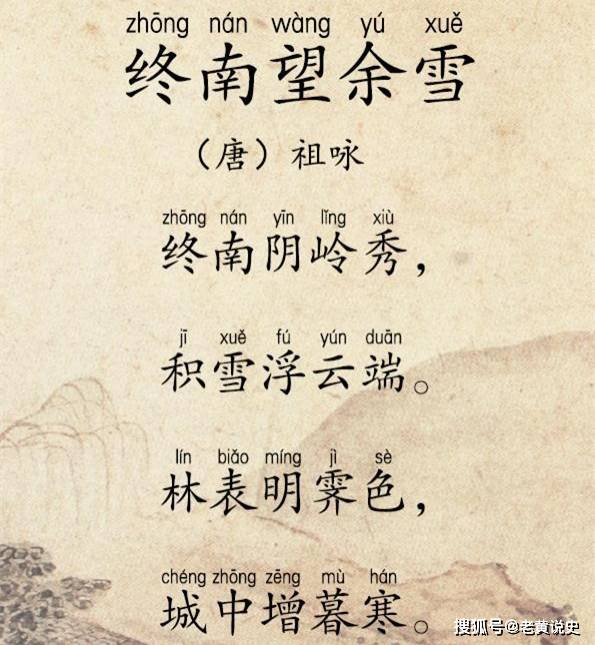 zhōng nán wàng yú xuě
终南望余雪
（唐）祖咏
zhōng nán yīn lǐng xiù
终南阴岭秀，
jī xuě fú yún duān
积雪浮云端。
lín biǎo míng jì sè
林表明霁色，
chéng zhōng zēng mù hán
城中增暮寒。
搜狐号@老黄说史